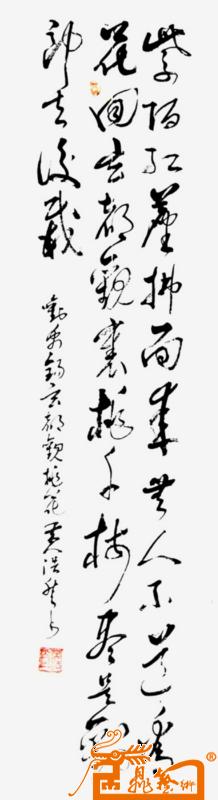 紫陌红尘拂面来无人不道看
花回玄都观里桃千树尽是刘
郎去后栽
刘禹锡玄都观桃花